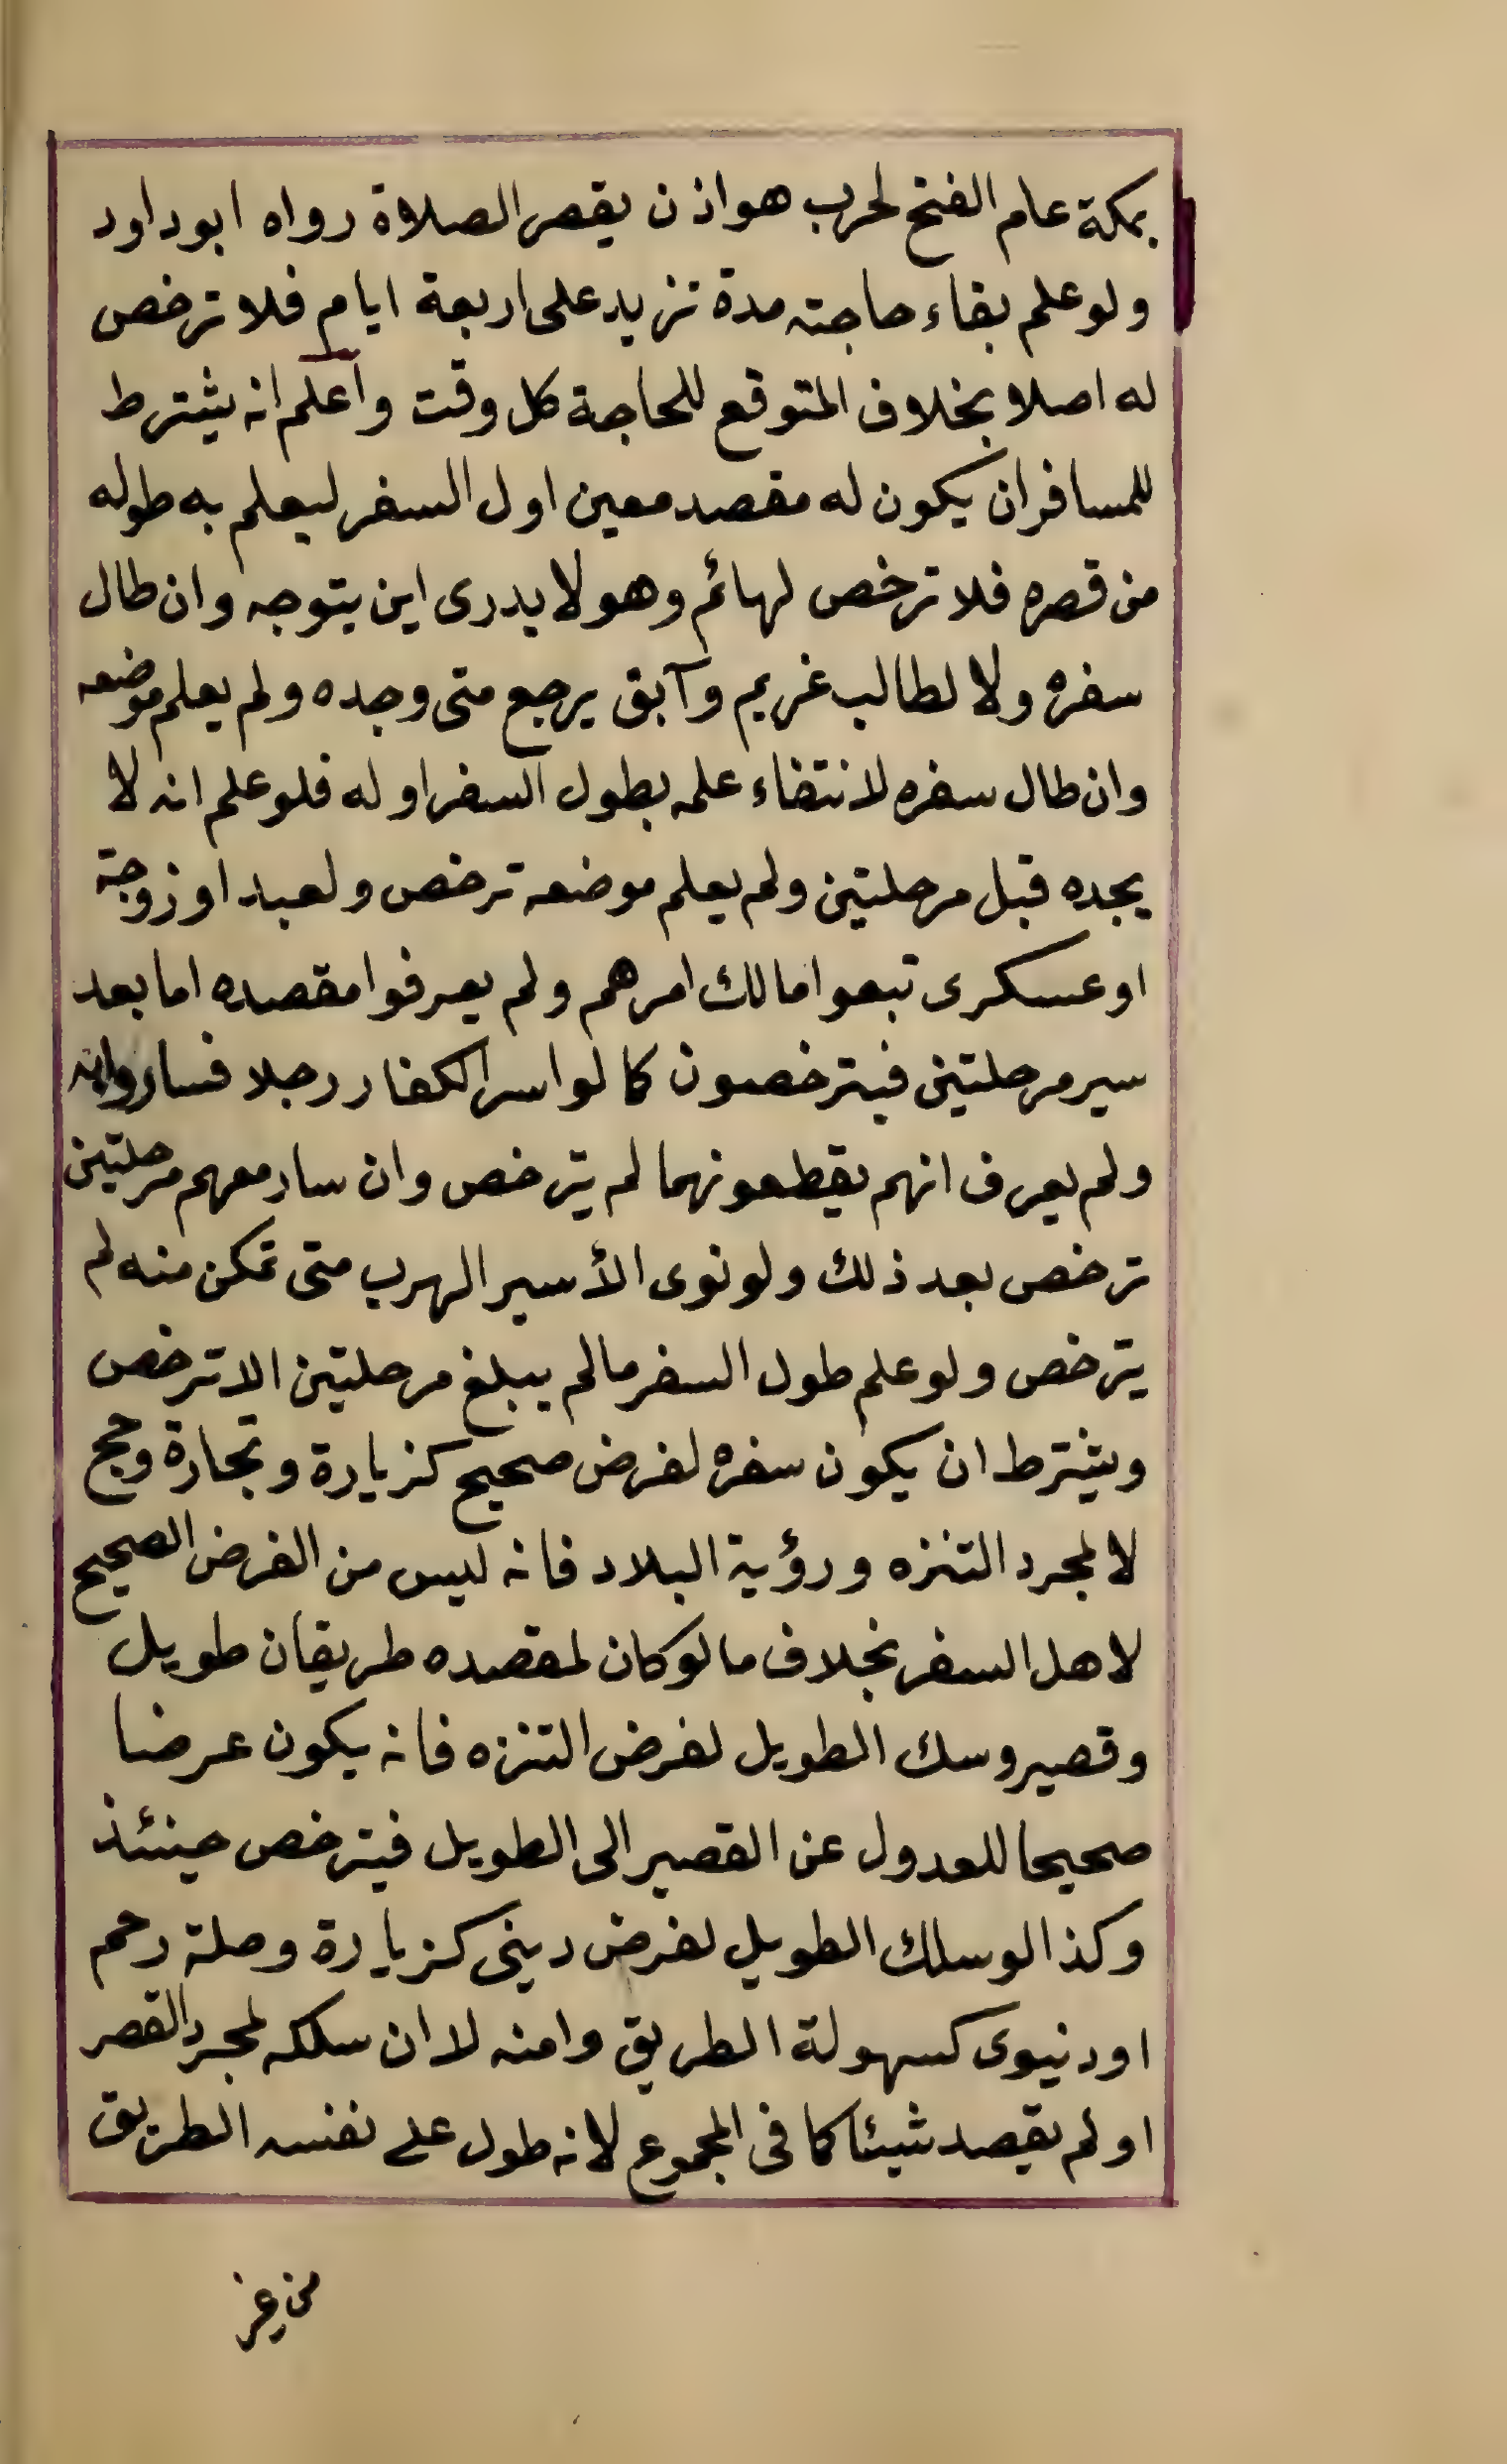 بمكة عام الفتح لحرب هوازن يقصر الصلاة رواه ابوداود
ولو علم بقاء حاجته مدة تزيد على اربعة ايام فلا ترخص
له اصلا بخلاف المتوقع للحاجة كل وقت واعلم انه يشترط
للمسافر ان يكون له مقصد معين اول السفر ليعلم به طوله
من قصره فلا ترخص لهائم وهو لا يدرى اين يتوجه وان طال
سفره ولا لطالب غريم وآبق يرجع متى وجده ولم يعلم موضعه
وان طال سفره لانتفاء علمه بطول السفر اوله فلو علم انه لا
يجده قبل مرحلتين ولم يعلم موضعه ترخص ولعبد او زوجة
او عسكرى تبعوا مالك امرهم ولم يعرفوا مقصده اما بعد
سير مرحلتين فيترخصون كما لو اسر الكفار رجلا فساروا به
ولم يعرف انهم يقطعونهما لم يترخص وان سار معهم مرحلتين
ترخص بعد ذلك ولو نوى الأسير الهرب متى تمكن منه لم
يترخص ولو علم طول السفر مالم يبلغ مرحلتين الا ترخص
ويشترط ان يكون سفره لغرض صحيح كزيارة وتجارة وحج
لا لمجرد التنزه ورؤية البلاد فانه ليس من الغرض الصحيح
لاهل السفر بخلاف مالو كان لمقصده طريقان طويل
وقصير وسك الطويل لغرض التنزه فانه يكون عرضا
صحيحا للعدول عن القصير الى الطويل فيترخص حينئذ
وكذا لو سلك الطويل لغرض دينى كزيارة وصلة رحم
او دنيوى كسهولة الطريق وامنه لا ان سلكه لمجرد القصر
او لم يقصد شيئا كما فى المجموع لانه طول على نفسه الطريق
من غير